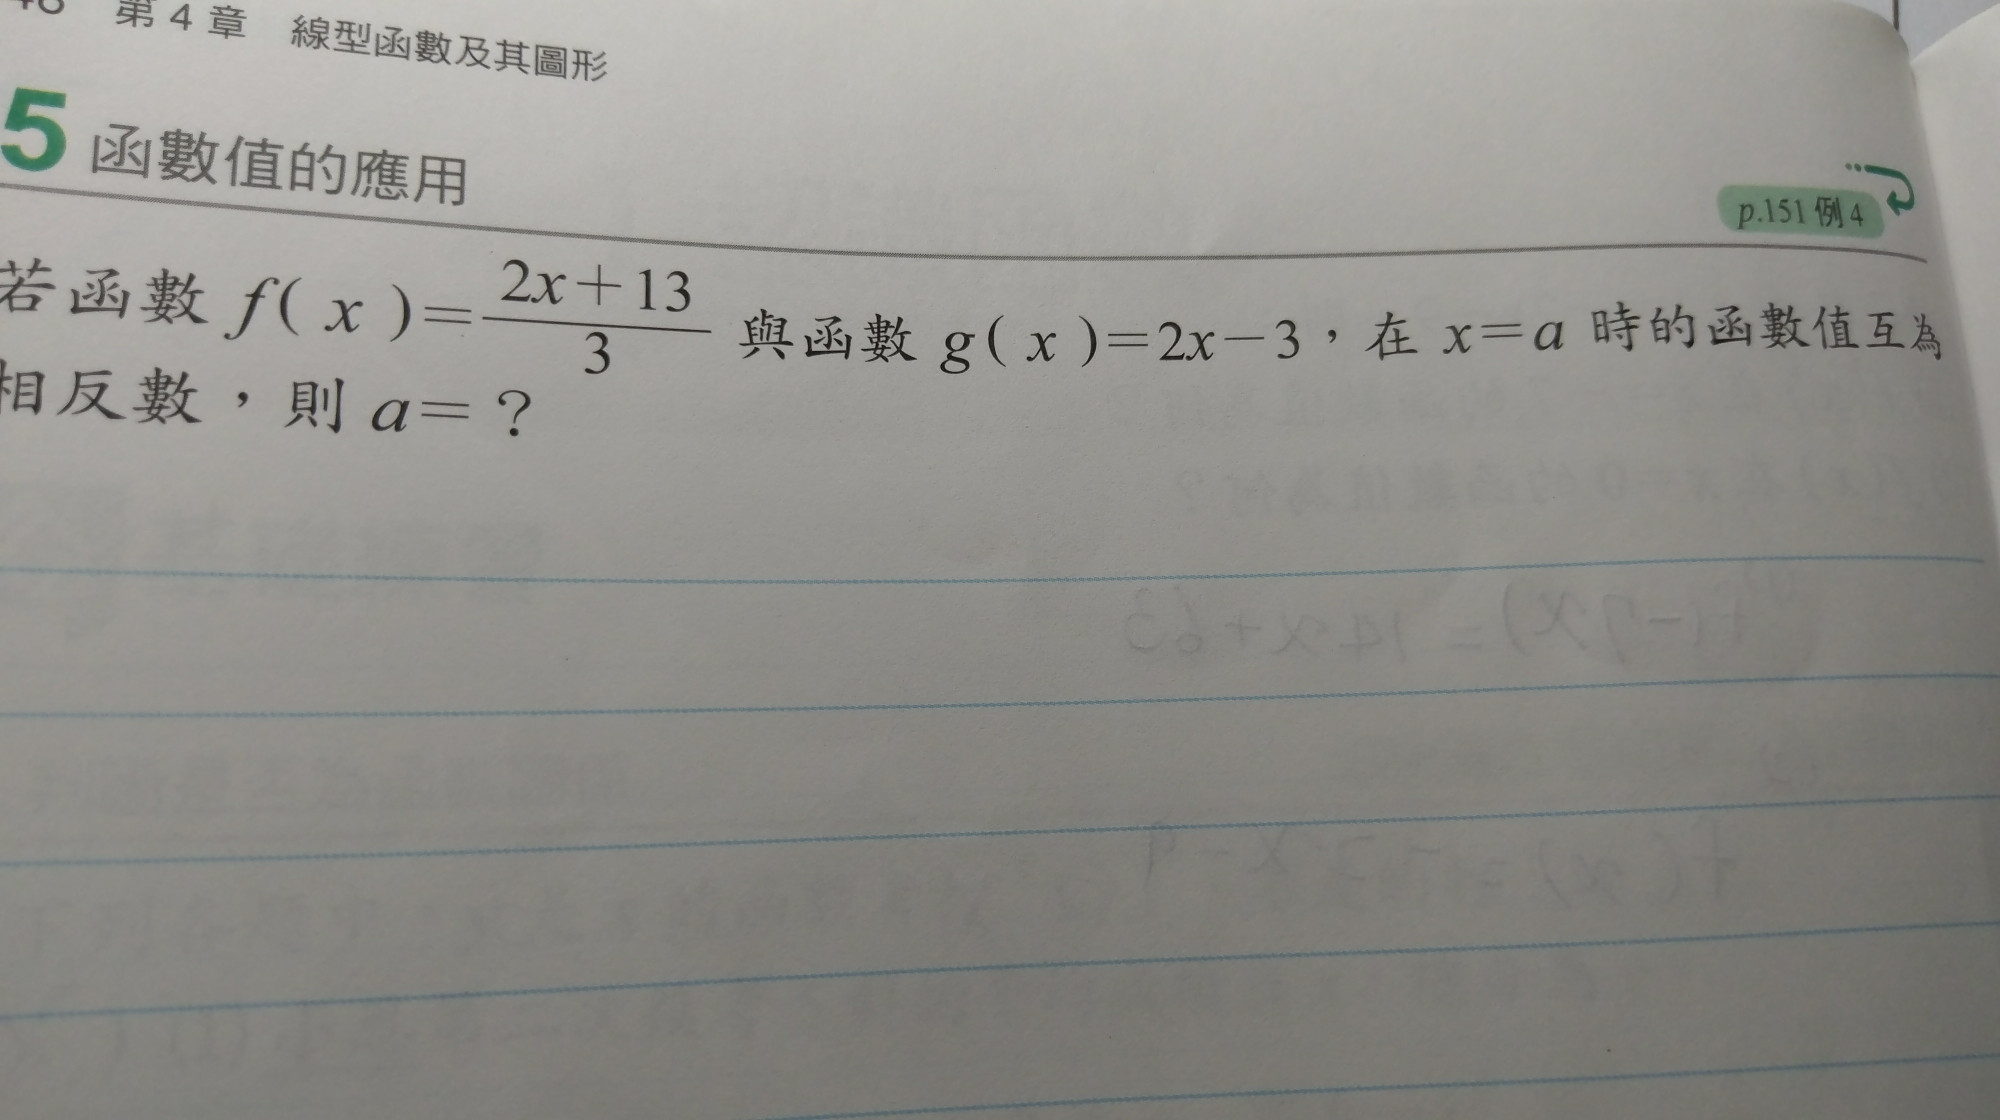 第 4 章 線型函數及其圖形
5 函數值的應用
p.151 例 4
若函數 f( x )=\frac{2x+13}{3} 與函數 g( x )=2x-3，在 x=a 時的函數值互為
相反數，則 a= ?